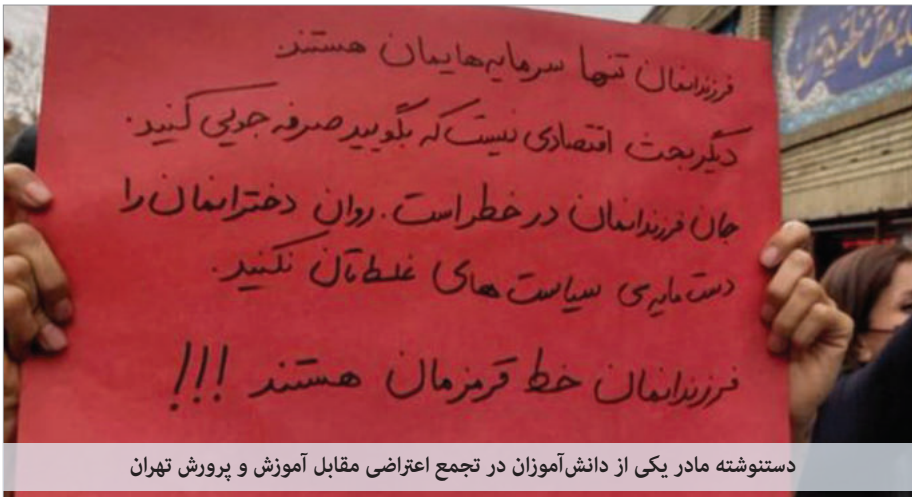 فرزندانمان تنها سرمایه‌هایمان هستند
دیگر بحث اقتصادی نیست که بگویید صرفه جویی کنید.
جان فرزندانمان در خطر است. روان دخترانمان را
دست مایه‌ی سیاست های غلطتان نکنید.
فرزندانمان خط قرمزمان هستند !!!
دستنوشته مادر یکی از دانش‌آموزان در تجمع اعتراضی مقابل آموزش و پرورش تهران